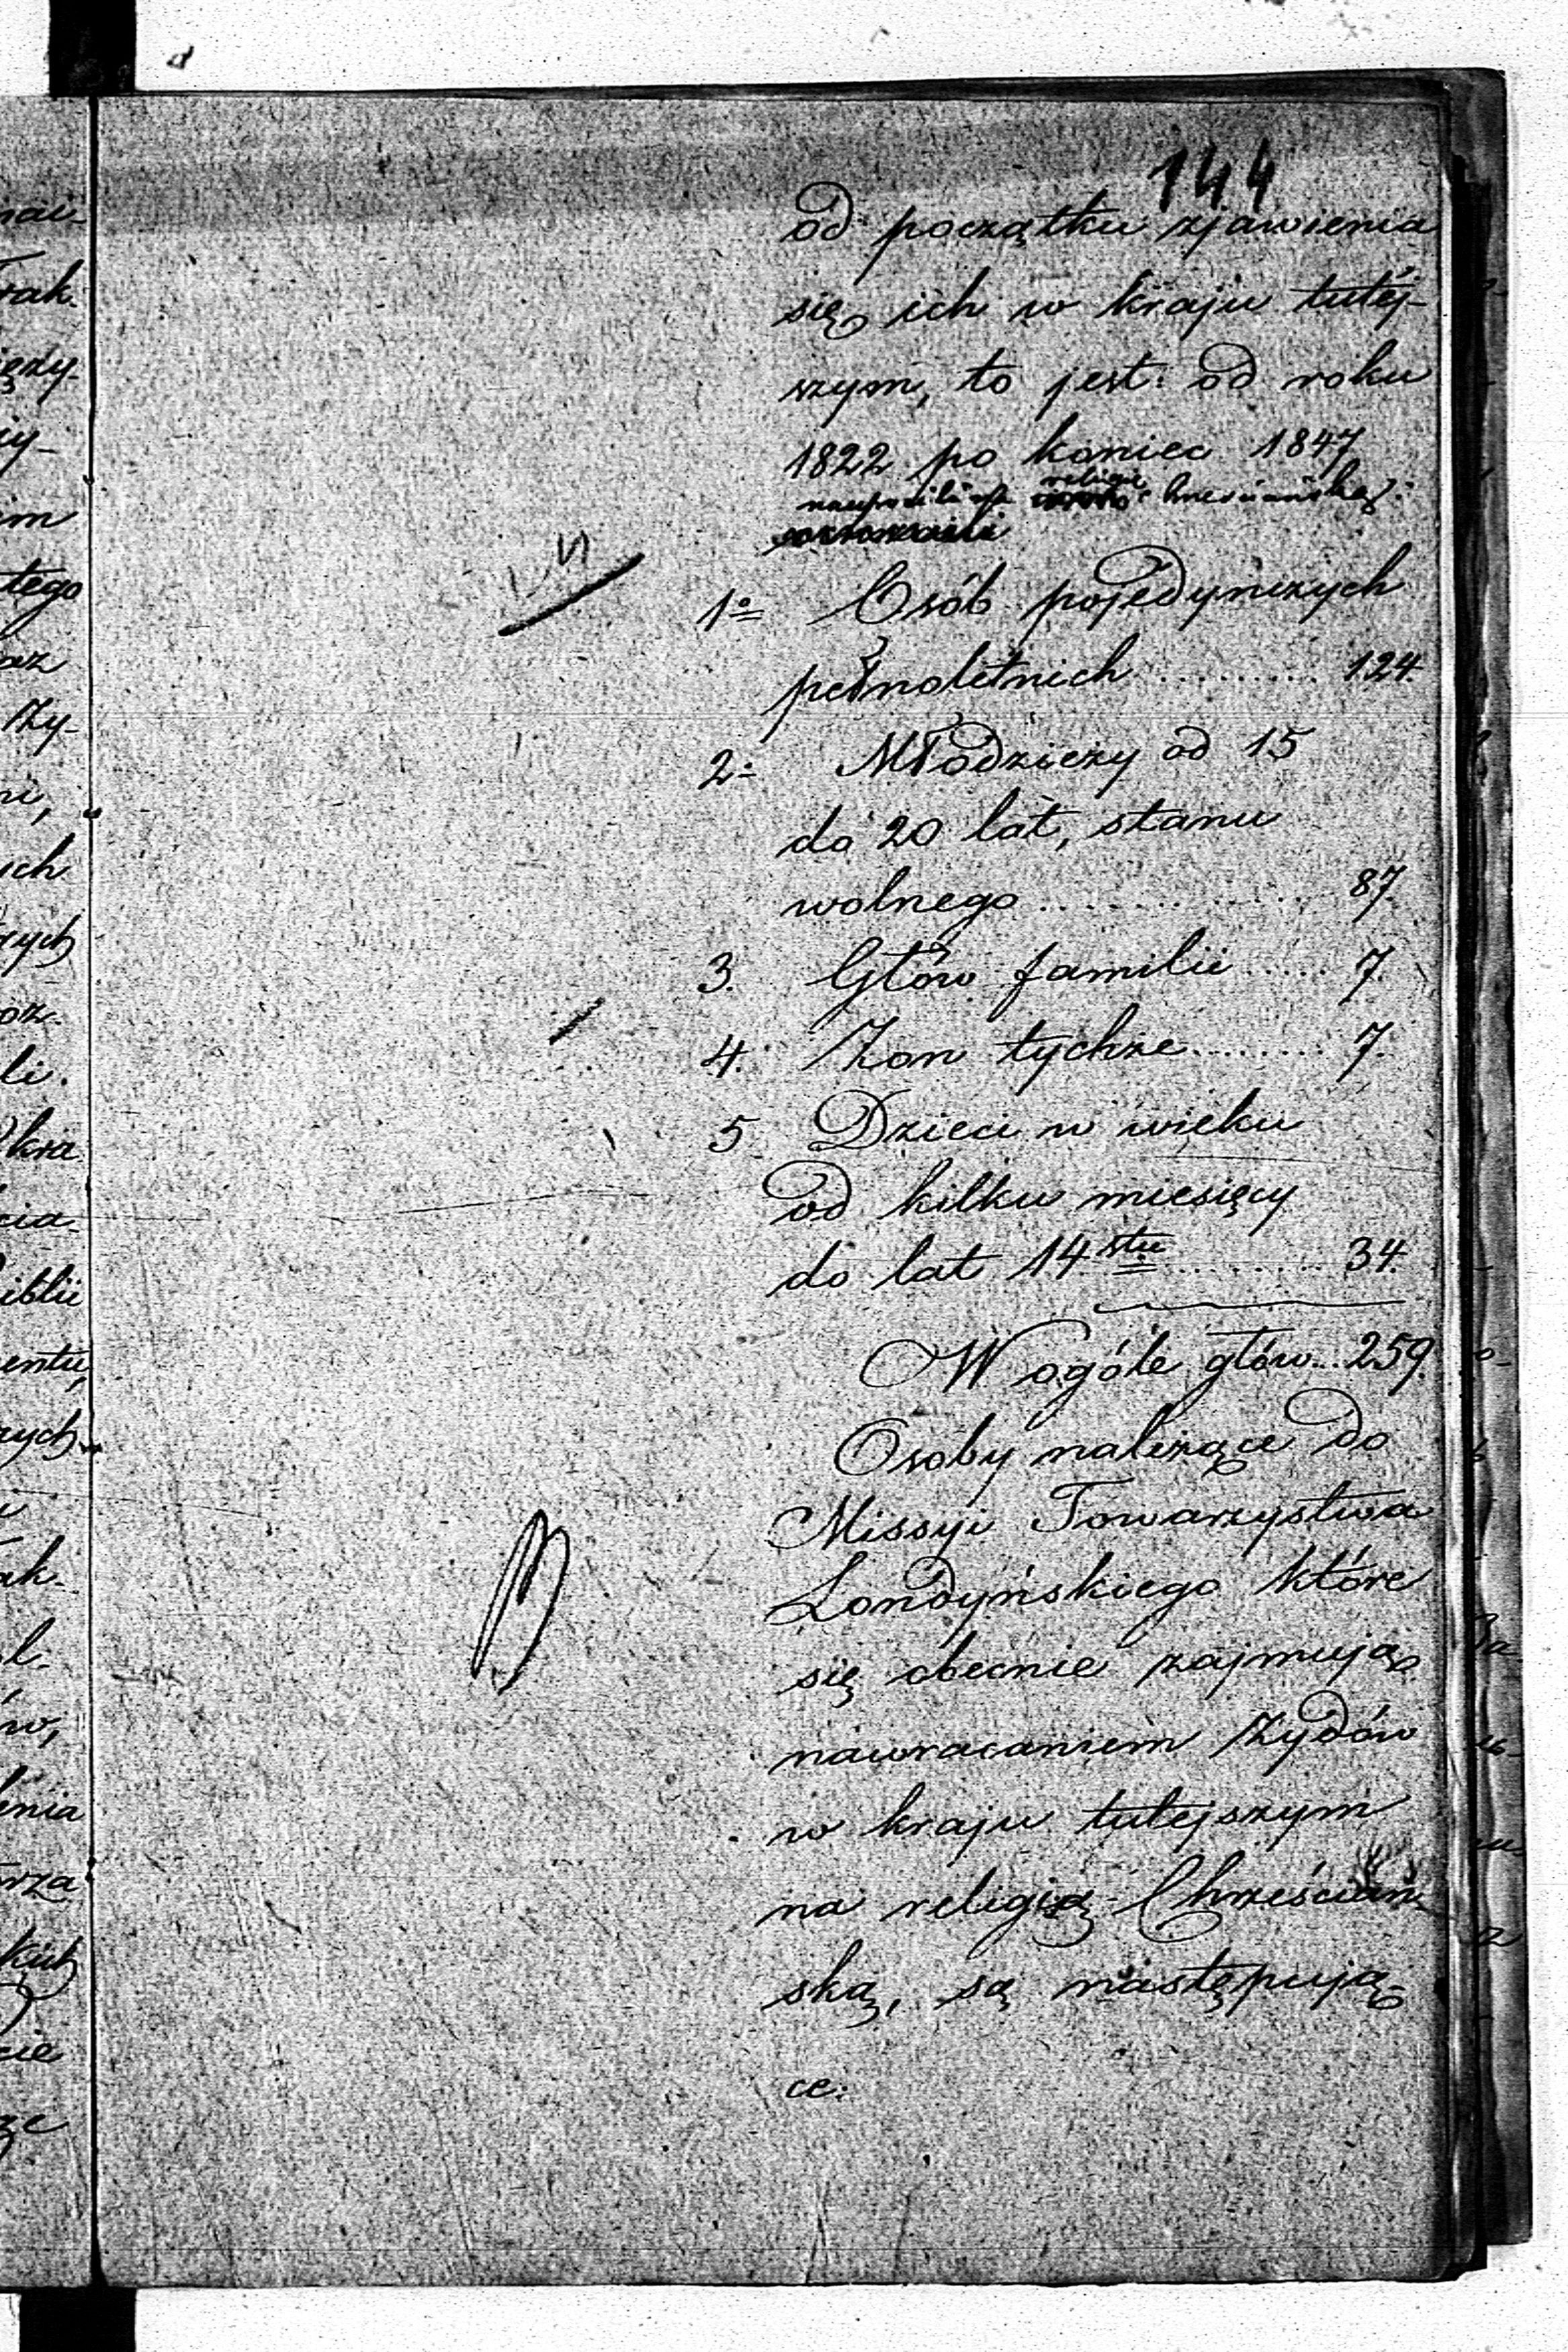 144
od początku zjawienia
się ich w kraju tutej-
szym, to jest: od roku
1822 po koniec 1847
religię chrześciańską:
1º Osób pojedyńczych
pełnoletnich ......... 124
2= Młodzieży od 15
do 20 lat, stanu
wolnego ............. 87
3. Głów familii ..... 7
4. Żon tychże ........ 7.
5 Dzieci w wieku
od kilku miesięcy
do lat 14stu ......... 34
W ogóle głów... 259.
Osoby należące do
Missyi Towarzystwa
Londyńskiego które
się obecnie zajmują
nawracaniem Żydów
w kraju tutejszym
na religią Chrześciań-
ską, są następują-
ce: